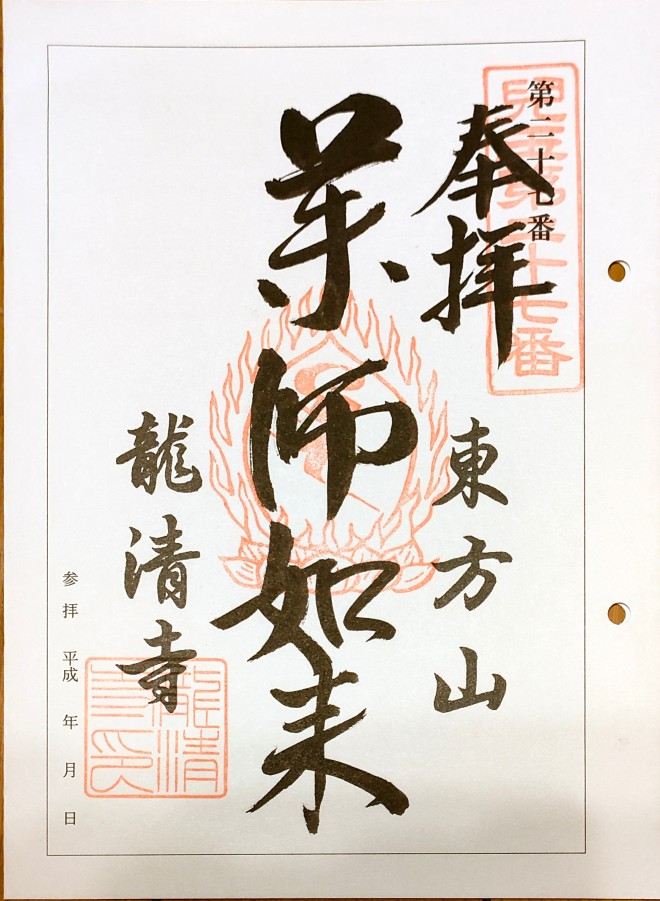 第二十七番
児玉第二十七番
奉拝
東方山
薬師如来
龍清寺
龍清
寺印
参拝 平成 年 月 日